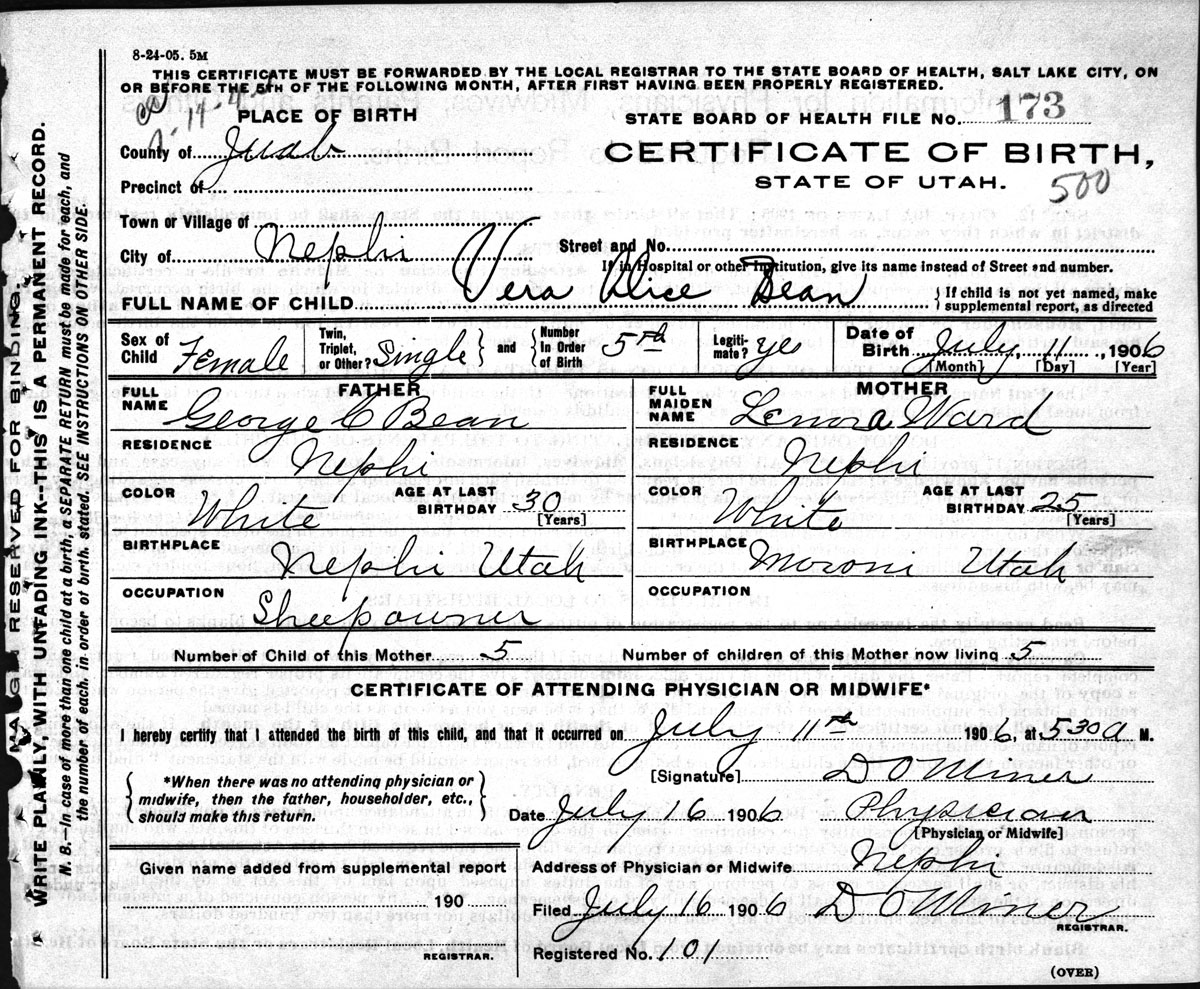 8-24-05. 5M
THIS CERTIFICATE MUST BE FORWARDED BY THE LOCAL REGISTRAR TO THE STATE BOARD OF HEALTH, SALT LAKE CITY, ON
OR BEFORE THE 5TH OF THE FOLLOWING MONTH, AFTER FIRST HAVING BEEN PROPERLY REGISTERED.
PLACE OF BIRTH
STATE BOARD OF HEALTH FILE No. 173
County of Juab
CERTIFICATE OF BIRTH,
Precinct of
STATE OF UTAH. 500
Town or Village of
City of Nephi
Street and No.
If in Hospital or other Institution, give its name instead of Street and number.
FULL NAME OF CHILD Vera Alice Bean { If child is not yet named, make supplemental report, as directed
Sex of Child Female Twin, Triplet, or Other? Single } and { Number In Order of Birth 5th Legitimate? yes Date of Birth July 11, 1906
[Month] [Day] [Year]
FATHER
FULL NAME George C Bean
RESIDENCE Nephi
COLOR White AGE AT LAST BIRTHDAY 30
[Years]
BIRTHPLACE Nephi Utah
OCCUPATION Sheepowner
MOTHER
FULL MAIDEN NAME Lenora Ward
RESIDENCE Nephi
COLOR White AGE AT LAST BIRTHDAY 25
[Years]
BIRTHPLACE Moroni Utah
OCCUPATION
Number of Child of this Mother 5 Number of children of this Mother now living 5
CERTIFICATE OF ATTENDING PHYSICIAN OR MIDWIFE*
I hereby certify that I attended the birth of this child, and that it occurred on July 11th 1906, at 530 a M.
{ *When there was no attending physician or
midwife, then the father, householder, etc.,
should make this return. }
[Signature] D O Miner
Date July 16 1906 Physician
[Physician or Midwife]
Given name added from supplemental report
190
REGISTRAR.
Address of Physician or Midwife Nephi
Filed July 16 1906 D O Miner
REGISTRAR.
Registered No. 101
(OVER)
MARGIN RESERVED FOR BINDING
WRITE PLAINLY WITH UNFADING INK--THIS IS A PERMANENT RECORD.
N. B.--In case of more than one child at a birth, a SEPARATE RETURN must be made for each, and
the number of each in order of birth stated. SEE INSTRUCTIONS ON OTHER SIDE.